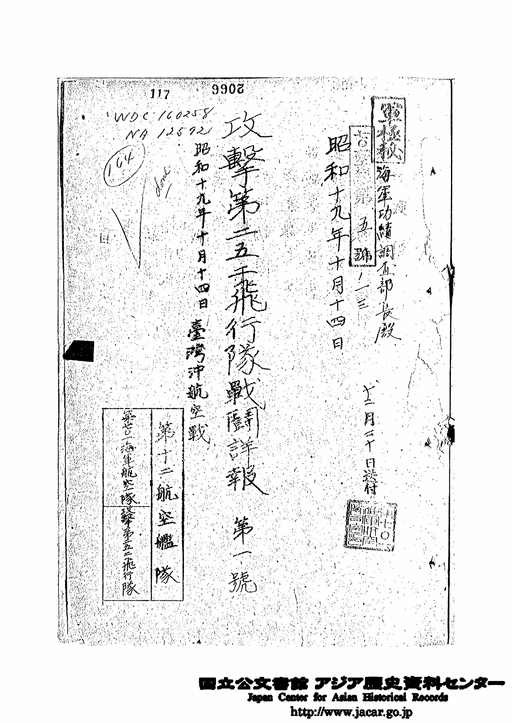 117
2066
WDC 160258
NA 12592
164
軍極秘
海軍功績調査部長殿
第五號ノ一三
昭和十九年十月十四日
十二月二十日送付
攻擊第二五二飛行隊戰鬪詳報 第一號
昭和十九年十月十四日 臺灣沖航空戰
第十二航空艦隊
海軍航空隊
攻擊第二五二飛行隊
国立公文書館 アジア歴史資料センター
Japan Center for Asian Historical Records
http://www.jacar.go.jp